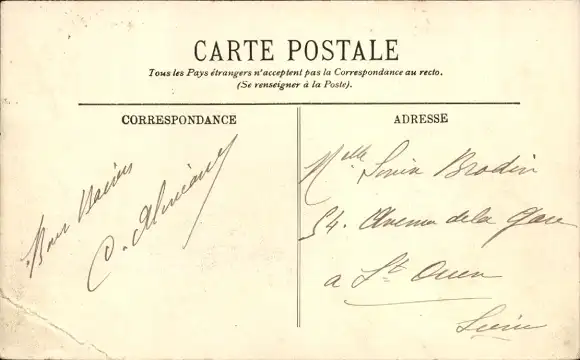 CARTE POSTALE
Tous les Pays étrangers n'acceptent pas la Correspondance au recto.
(Se renseigner à la Poste).
CORRESPONDANCE
Bons Baisers
ADRESSE
Melle Brodin
54. Avenue de la Gare
a St Ouen
Seine